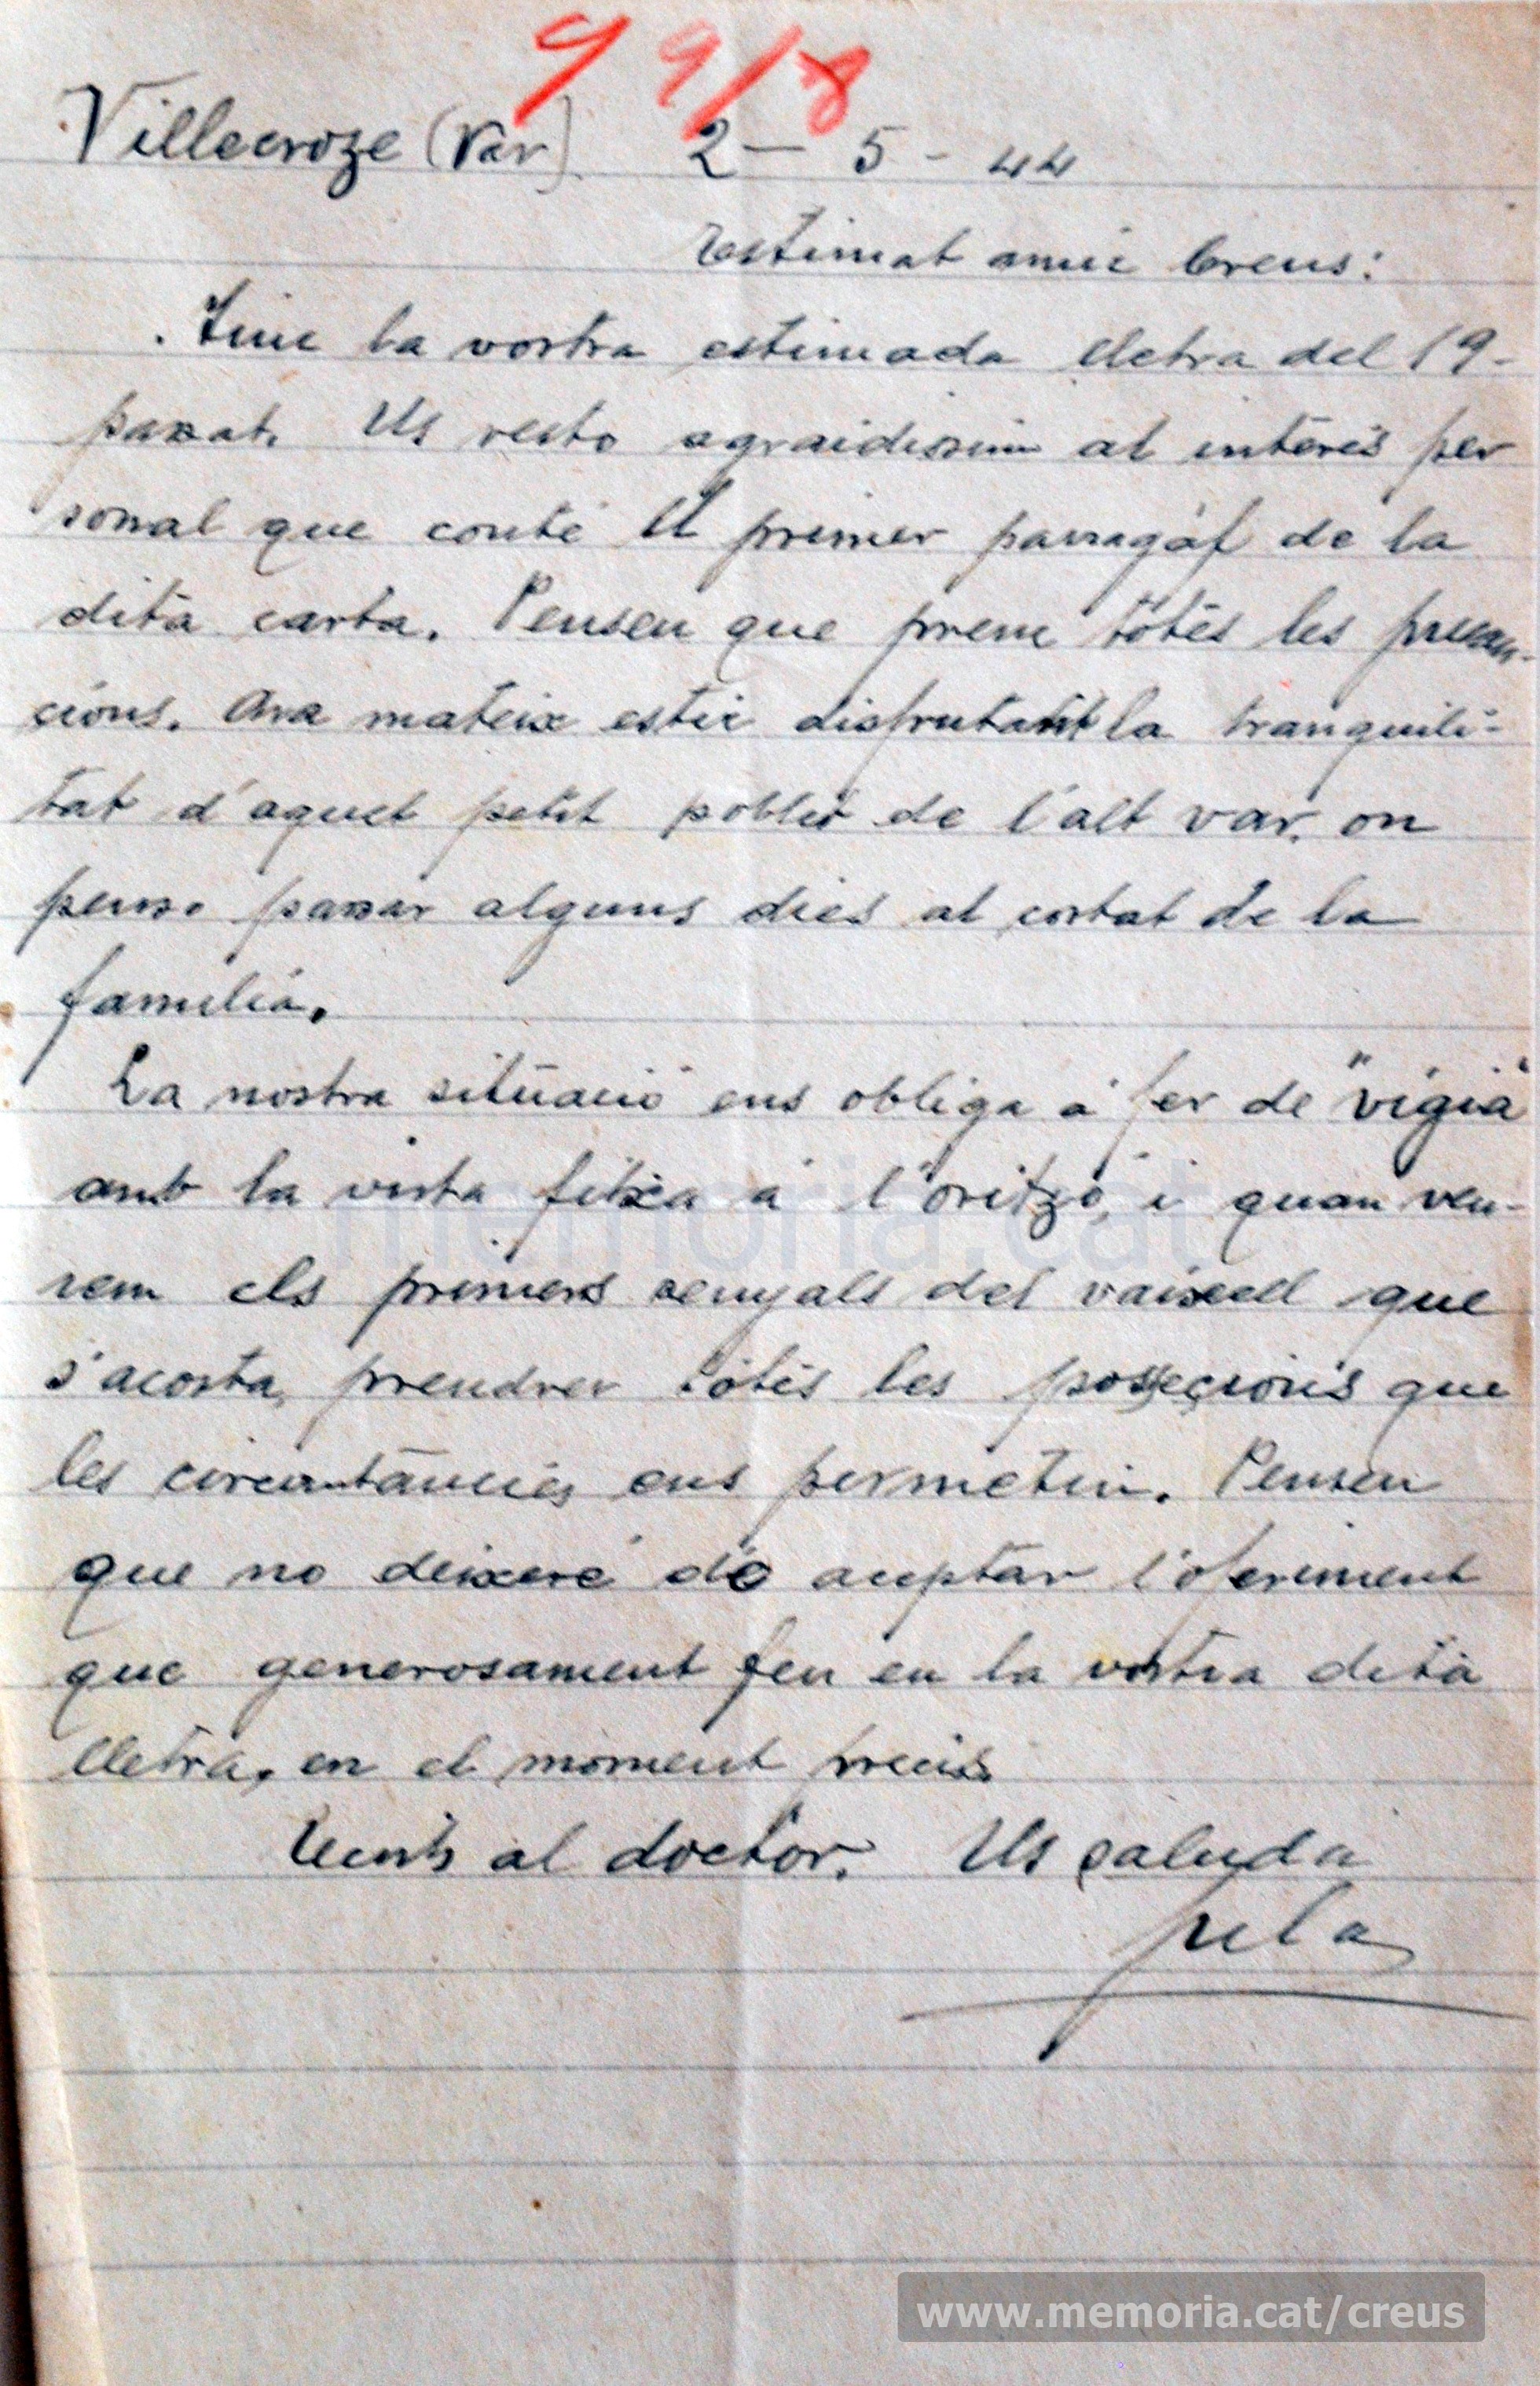 9 9/8
Villecroze (Var) 2 - 5 - 44
Estimat amic Creus:
Tinc la vostra estimada lletra del 19-
passat. Us resto agraidissim al interès per
sonal que conté el primer parragàf de la
dita carta. Penseu que prenc tótes les precau-
cions. Ara mateix estic disfrutant la tranquili-
tat d'aquet petit poblet de l'alt var, on
penso passar alguns dies al costat de la
familia.
La nostra situació ens obliga a fer de "vigia"
amb la vista fitxa a l'oritzó, i quan veu-
rem els primers senyals del vaixell que
s'acosta, prendrer tótes les possecions que
les circumtáncies ens permetin. Penseu
que no deixeré de aceptar l'oferiment
que generosament feu en la vostra dita
lletra, en el moment precis.
al doctor. Us saluda
memoria.cat
www.memoria.cat/creus